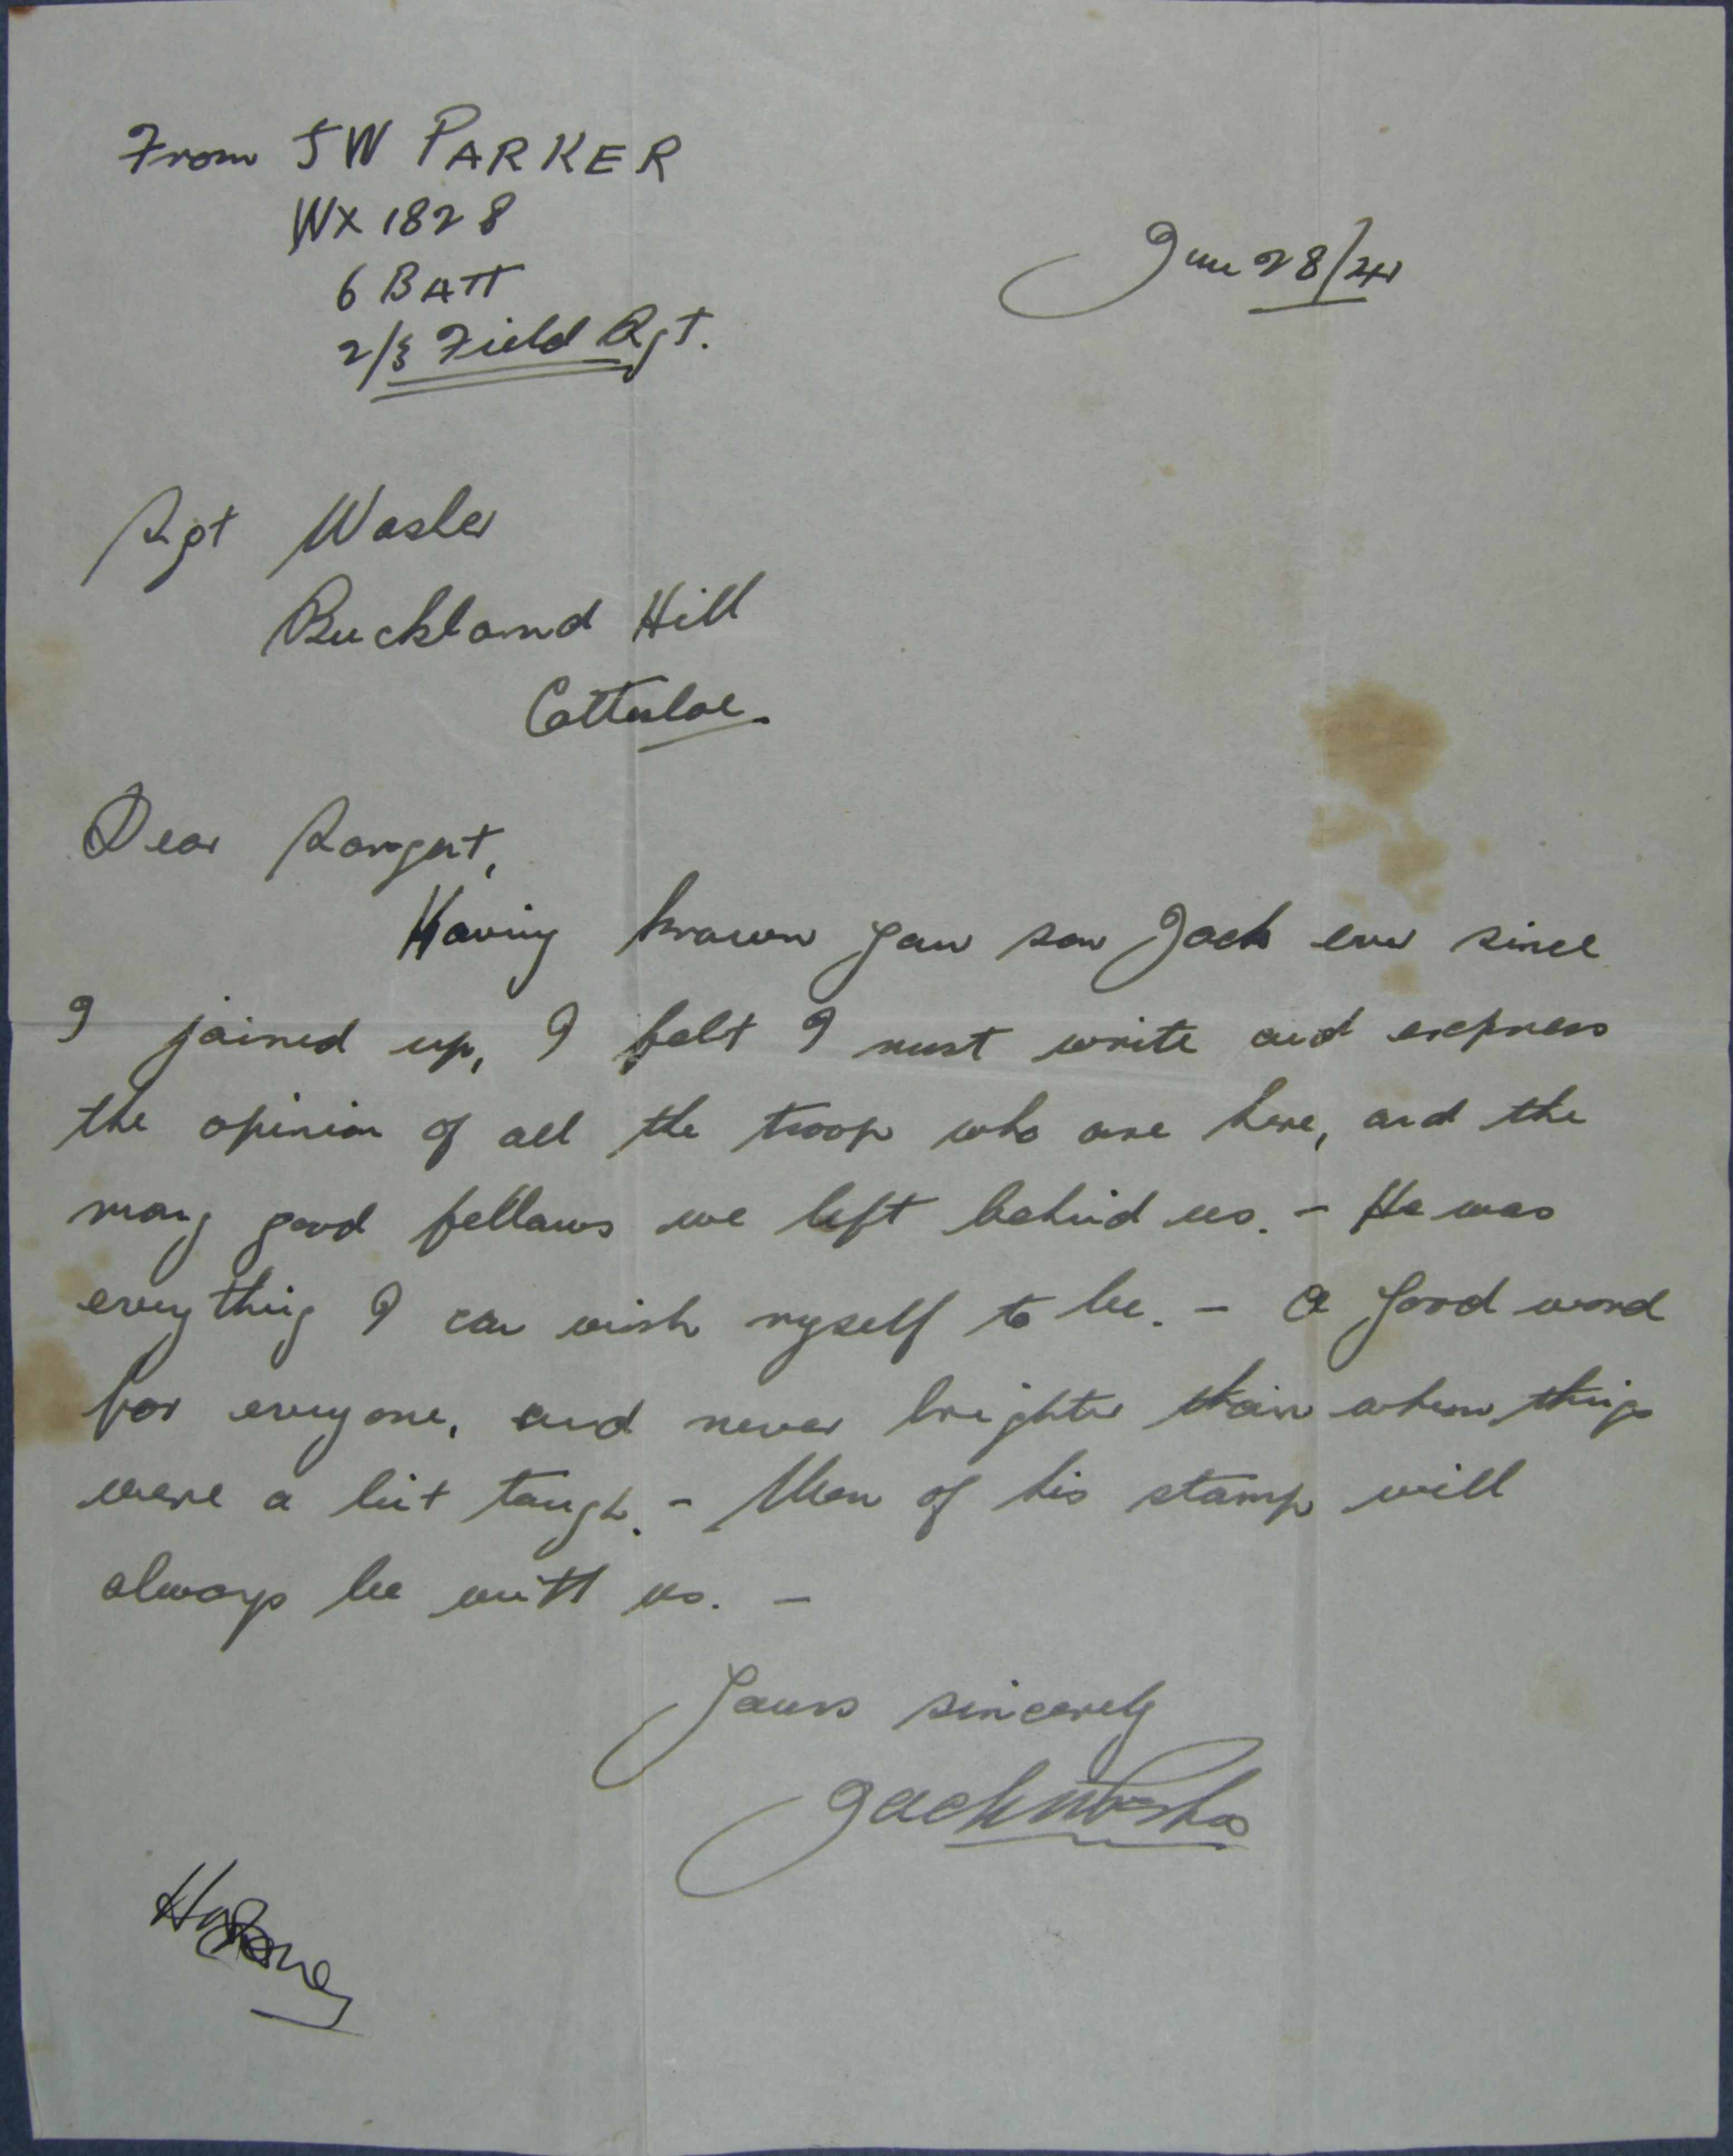 From JW PARKER
WX 1828
6 BATT
2/3 Field Rgt.
June 28/41
Sgt
Buckland Hill
Cottesloe.
Dear Sargent,
Having known your son Jack ever since
I joined up, I felt I must write and express
the opinion of all the troop who are here, and the
many good fellows we left behind us. - He was
everything I can wish myself to be. - A good word
for everyone, and never brighter than when things
were a bit tough. - Men of his stamp will
always be with us. -
Yours sincerely
Jack